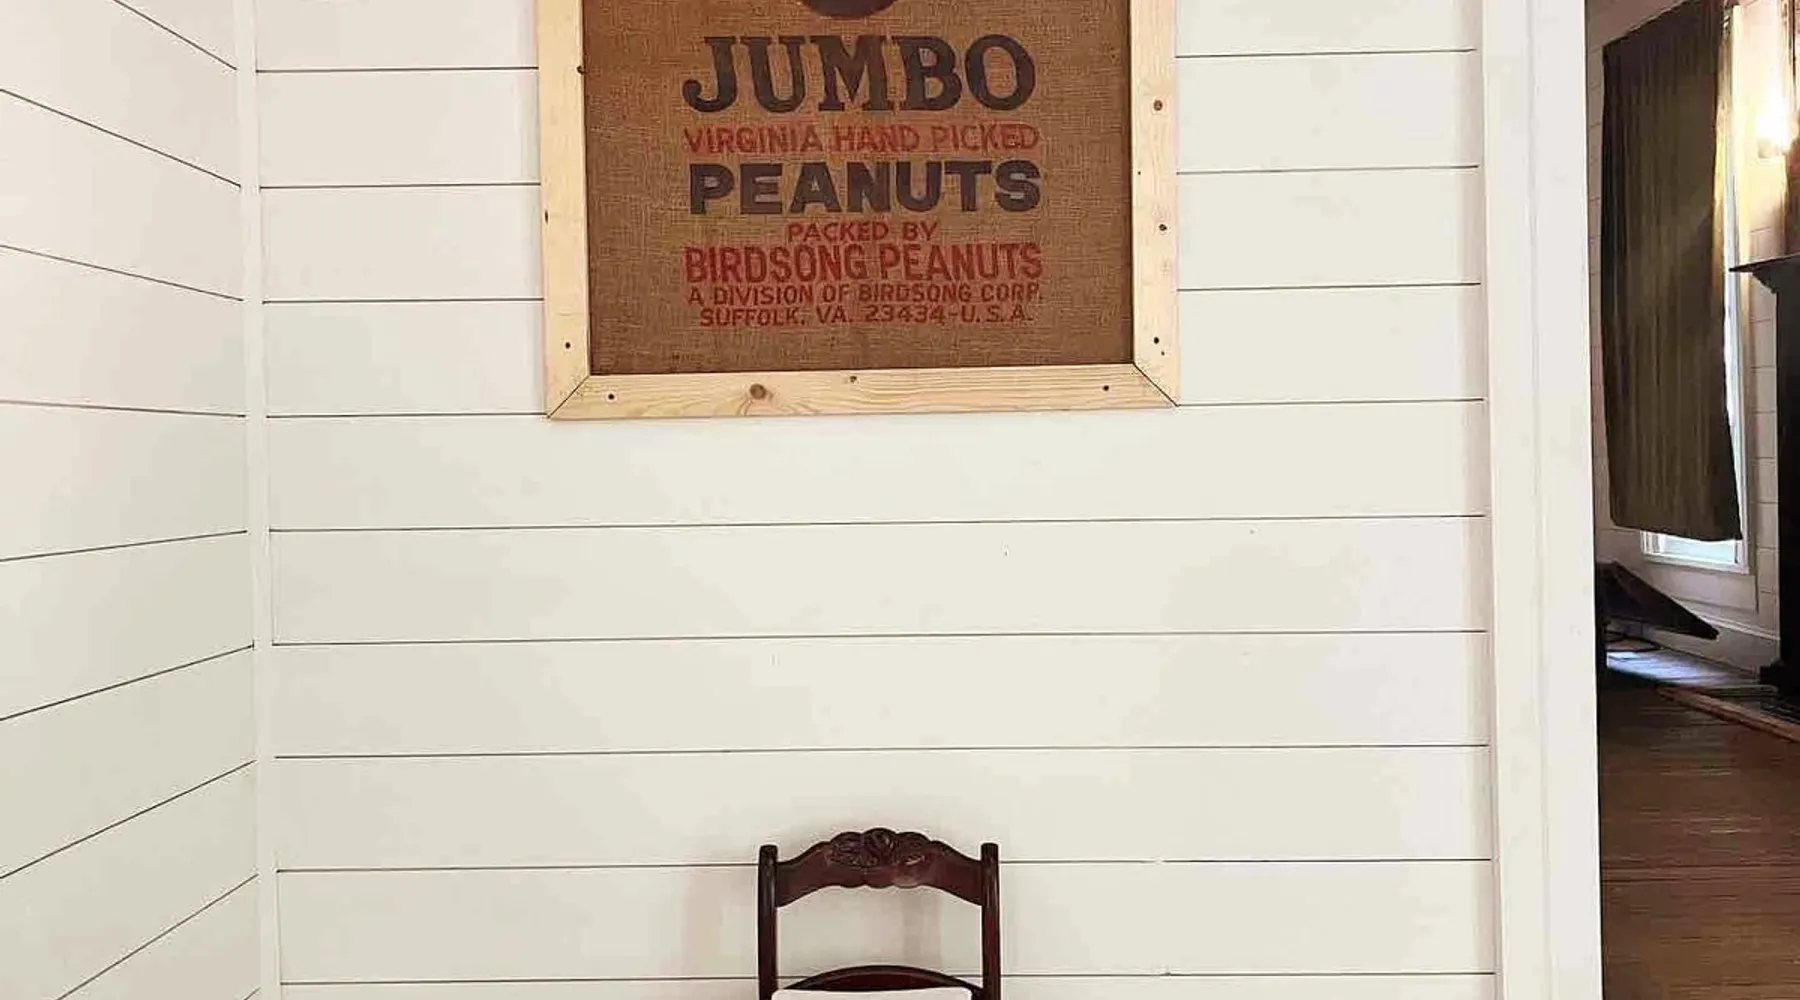 JUMBO
VIRGINIA HAND PICKED
PEANUTS
PACKED BY
BIRDSONG PEANUTS
A DIVISION OF BIRDSONG CORP.
SUFFOLK, VA. 23434-U.S.A.